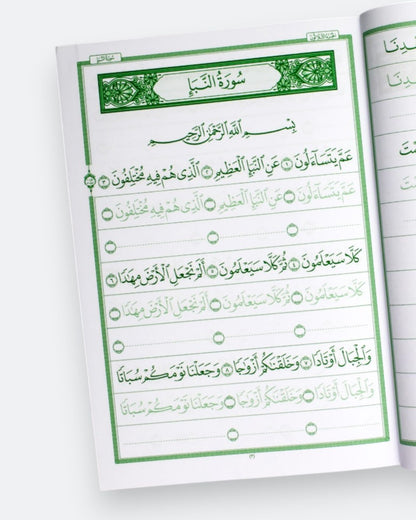 الجزء الثلاثون
سُورَةُ النَّبَإِ
بِسْمِ اللَّهِ الرَّحْمَٰنِ الرَّحِيمِ
عَمَّ يَتَسَاءَلُونَ ١ عَنِ النَّبَإِ الْعَظِيمِ ٢ الَّذِي هُمْ فِيهِ مُخْتَلِفُونَ ٣
عَمَّ يَتَسَاءَلُونَ عَنِ النَّبَإِ الْعَظِيمِ الَّذِي هُمْ فِيهِ مُخْتَلِفُونَ
كَلَّا سَيَعْلَمُونَ ٤ ثُمَّ كَلَّا سَيَعْلَمُونَ ٥ أَلَمْ نَجْعَلِ الْأَرْضَ مِهَٰدًا ٦
كَلَّا سَيَعْلَمُونَ ثُمَّ كَلَّا سَيَعْلَمُونَ أَلَمْ نَجْعَلِ الْأَرْضَ مِهَٰدًا
وَالْجِبَالَ أَوْتَادًا ٧ وَخَلَقْنَٰكُمْ أَزْوَٰجًا ٨ وَجَعَلْنَا نَوْمَكُمْ سُبَاتًا
وَالْجِبَالَ أَوْتَادًا وَخَلَقْنَٰكُمْ أَزْوَٰجًا وَجَعَلْنَا نَوْمَكُمْ سُبَاتًا